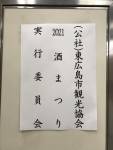 (公社)東広島市観光協会
2021 酒まつり
実行委員会